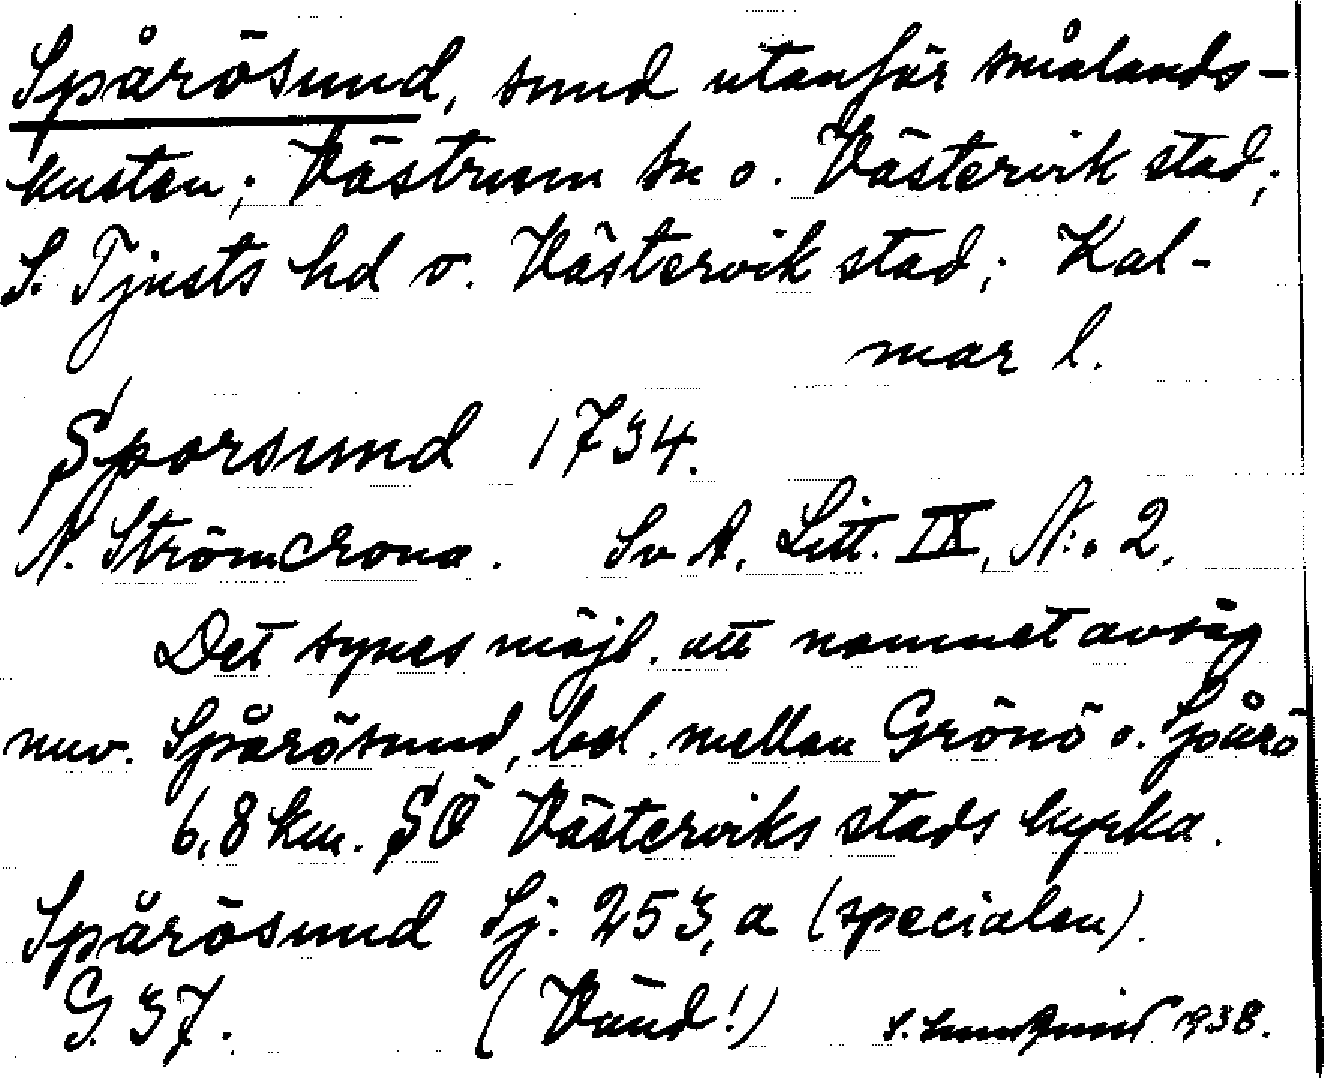 Spårösund, sund utanför smålands-
kusten; Västrum sn o. Västervik stad;
S. Tjusts hd o. Västervik stad; Kal-
mar l.
Sporsund 1734.
N. Strömcrona. Sv A. Litt. IX, N:o 2.
Det synes möjl. att namnet avsåg
nuv. Spårösund, bel. mellan Grönö o. Spårö
6,8 km. SÖ Västerviks stads kyrka.
Spårösund Sj. 253, a (specialen).
G. 37. (Vänd!) S. 1938.